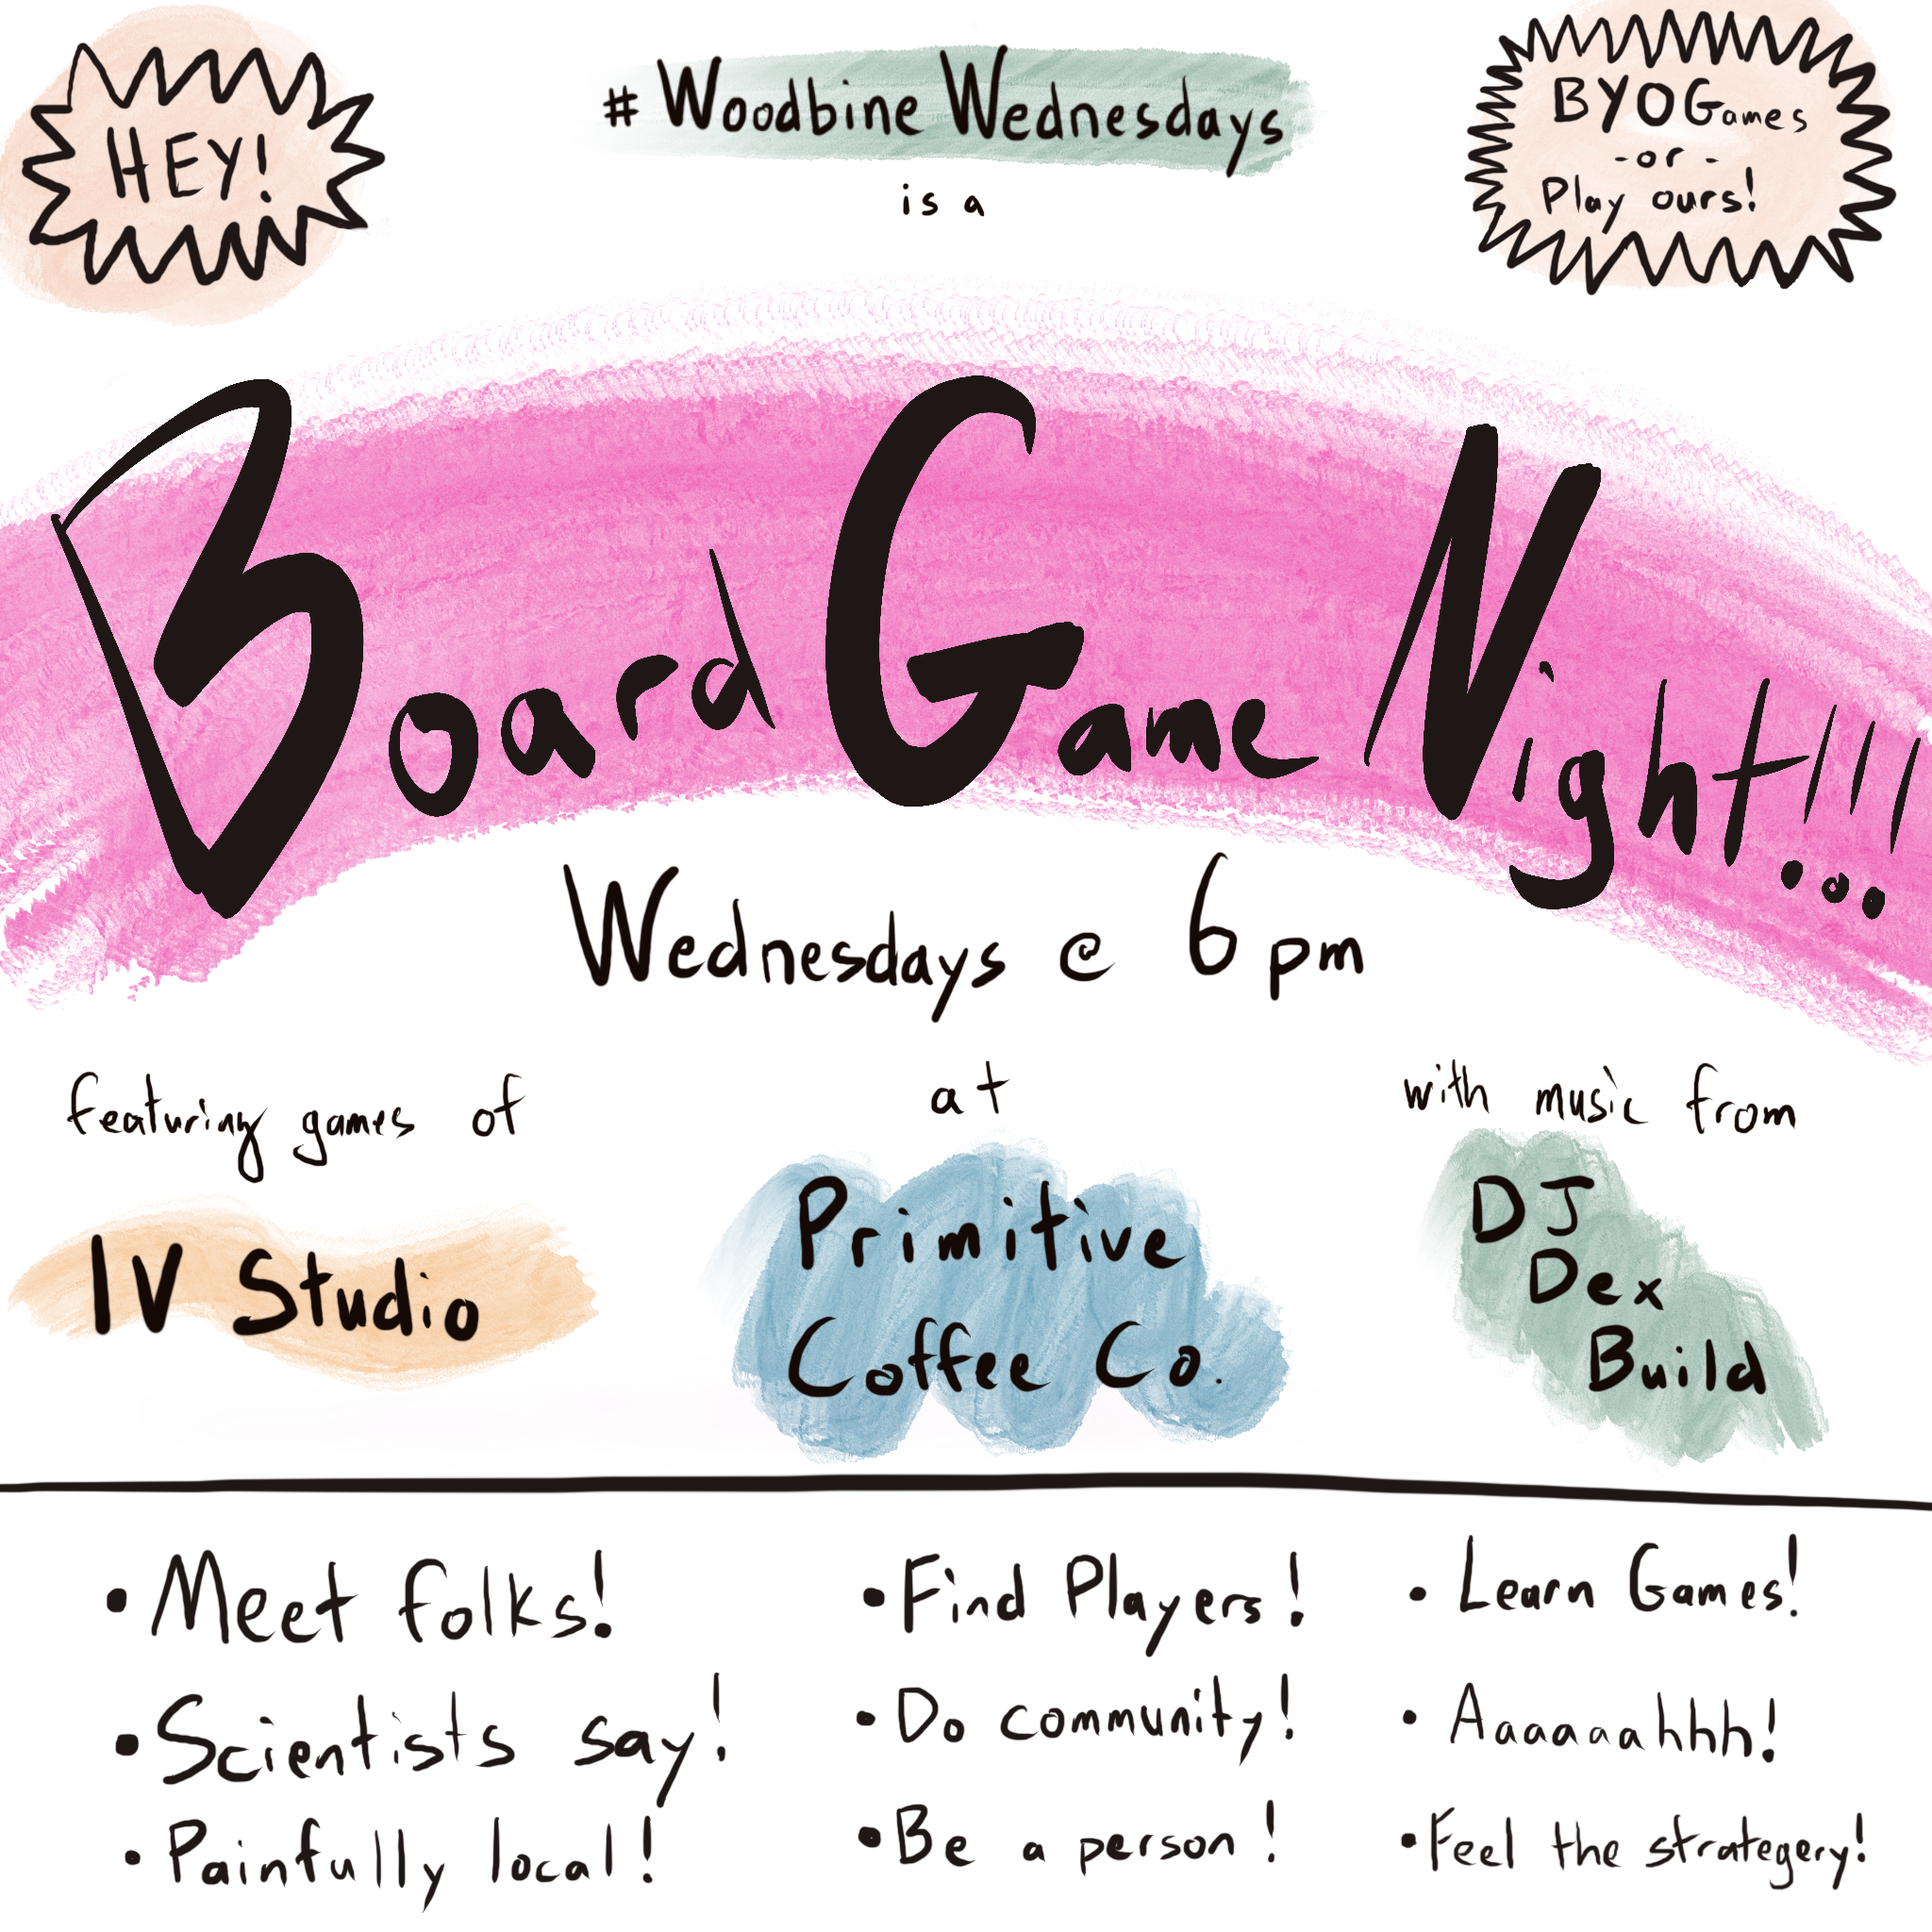 HEY!
# Woodbine Wednesdays
is a
BYOGames
- or -
Play ours!
Board Game Night!!!
Wednesdays @ 6 pm
featuring games of
IV Studio
at
Primitive
Coffee Co.
with music from
DJ
Dex
Build
• Meet folks!
• Scientists say!
• Painfully local!
• Find Players!
• Do community!
• Be a person!
• Learn Games!
• Aaaaaahhh!
• Feel the strategery!